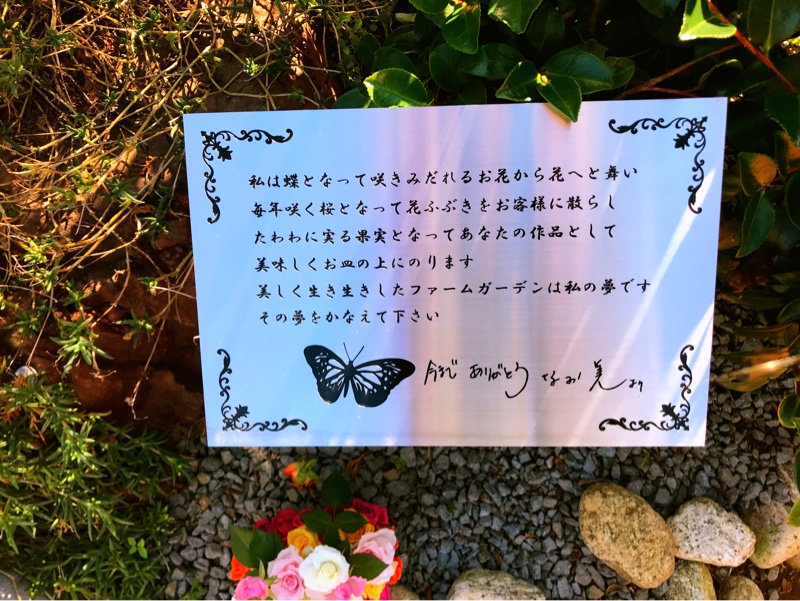 私は蝶となって咲きみだれるお花から花へと舞い
毎年咲く桜となって花ふぶきをお客様に散らし
たわわに実る果実となってあなたの作品として
美味しくお皿の上にのります
美しく生き生きしたファームガーデンは私の夢です
その夢をかなえて下さい
今まで ありがとう なお美 より